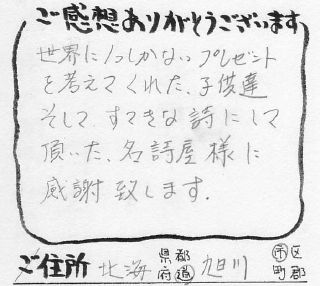 ご感想ありがとうございます
世界に1つしかないプレゼント
を考えてくれた、子供達
そして、すてきな詩にして
頂いた、名詩屋様に
感謝致します.
ご住所 北海 県都府道 旭川 市区町郡